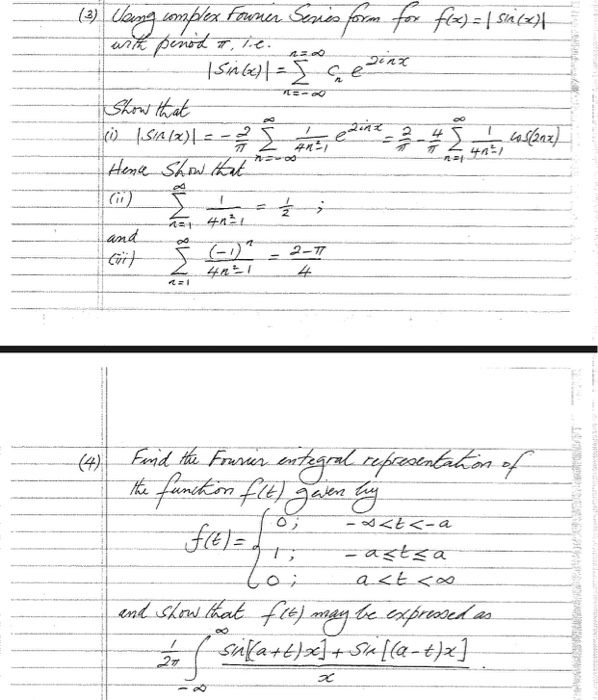 (3) Using complex Fourier Series form for f(x) = |sin(x)|
with period π, i.e.
|Sin(x)| = ∑_{n=-∞}^{n=∞} c_n e^{2inx}
Show that
(i) |Sin(x)| = -2/π ∑_{n=-∞}^{∞} 1/(4n²-1) e^{2inx} = 2/π - 4/π ∑_{n=1}^{∞} 1/(4n²-1) cos(2nx)
Hence Show that
(ii) ∑_{n=1}^{∞} 1/(4n²-1) = 1/2 ;
and
(iii) ∑_{n=1}^{∞} (-1)^n/(4n²-1) = (2-π)/4
(4) Find the Fourier integral representation of
the function f(t) given by
f(t) = { 0; -∞<t<-a
1; -a≤t≤a
0; a<t<∞
and show that f(t) may be expressed as
1/2π ∫_{-∞}^{∞} (sin[(a+t)x] + Sin[(a-t)x])/x .